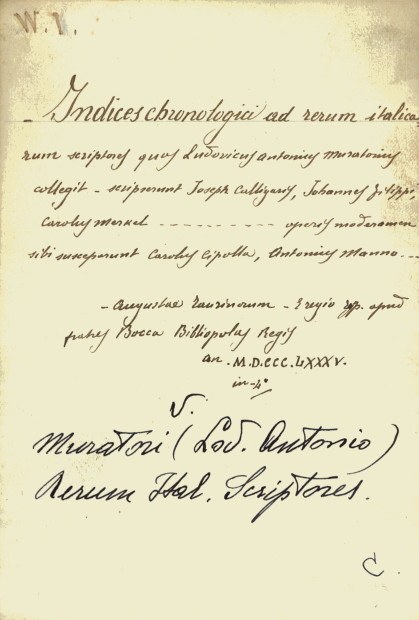 W.1.
- Indices chronologici ad rerum italica-
rum scriptores quos Ludovicus Antonius Muratorius
collegit - scripserunt Joseph Calligaris, Johannes Filippi,
Carolus Merkel - - - - - - - - - - operis moderamen
sibi susceperunt Carolus Cipolla, Antonius Manno - - -
- Augustae Taurinorum - E regio typ. apud
fratres Bocca Bibliopolas Regis
an. M.D.CCC.LXXXV.
in-4°
V.
Muratori (Lod. Antonio)
Rerum Ital. Scriptores.
C.